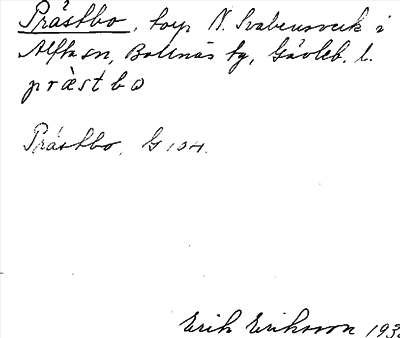 Prästbo, torp N. Svabensverk i
Alfta sn, Bollnäs tg, Gävleb. l.
prästbo
Prästbo, G 104.
Erik Eriksson